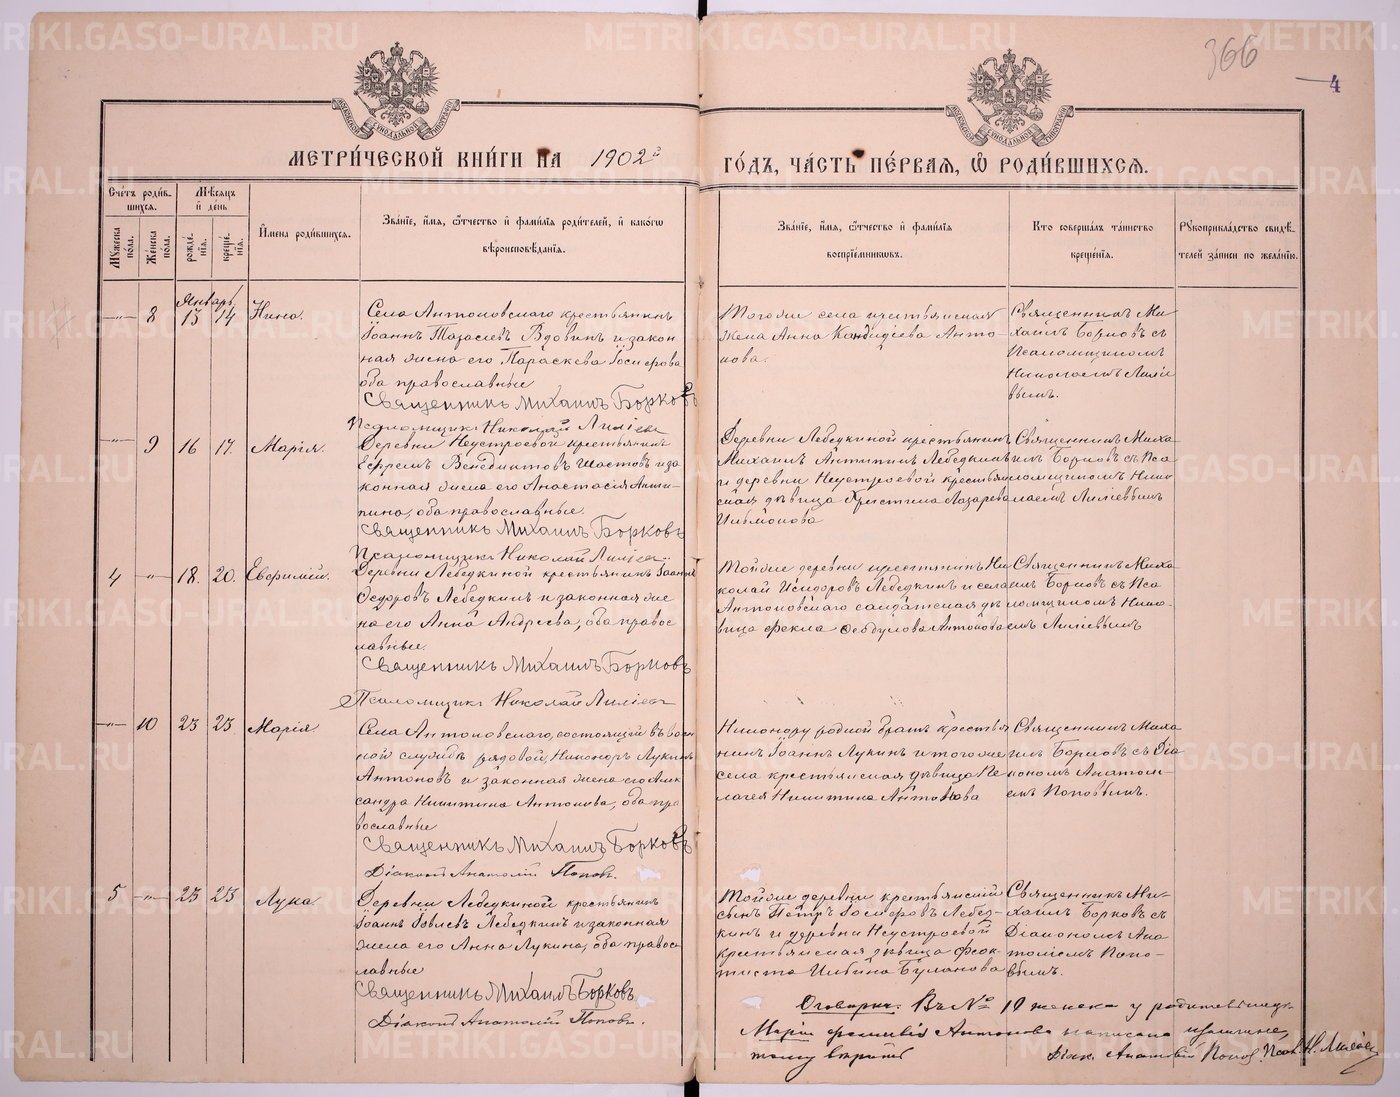 366
4
МЕТРИ́ЧЕСКОЙ КНИ́ГИ НА 1902й ГО́ДЪ, ЧА́СТЬ ПЕ́РВАЯ, Ѿ РОДИ́ВШИХСЯ.
Сче́тъ роди́вшихся.
Му́жеска по́ла.
Же́нска по́ла.
Мѣ́сяцъ и де́нь
рожде́нія.
креще́нія.
И́мена роди́вшихся.
Зва́ніе, и́мя, ѻ҆́тчество и фами́лія роди́телей, и како́гѡ
вѣроисповѣ́данія.
Зва́ніе, и́мя, ѻ҆́тчество и фами́лія
воспріе́мниковъ.
Кто соверша́лъ та́инство
креще́нія.
Рукоприкла́дство свидѣ́телей за́писи по жела́нію.
Январь
—„— 8 13 14 Нина.
Села Антоновскаго крестьянинъ
Іоаннъ Тарасіевъ Вдовинъ и закон
ная жена его Параскева Іосифова
оба православные
Священникъ Михаилъ Борковъ
Псаломщикъ Николай Лиліевъ
Тогоже села крестьянская
жена Анна Кандидіева Анто
нова.
Священникъ Ми
хаилъ Борковъ съ
Псаломщикомъ
Николаемъ Лиліе
вымъ.
—„— 9 16 17. Марія.
Деревни Неустроевой крестьянинъ
Ефремъ Венедиктовъ Шастовъ и за
конная жена его Анастасія Анти-
пина, оба православные.
Священникъ Михаилъ Борковъ
Псаломщикъ Николай Лиліевъ
Деревни Лебедкиной крестьянинъ
Михаилъ Антипинъ Лебедкинъ
и деревни Неустроевой крестьян
ская дѣвица Христина Лазарева
Священникъ Миха
илъ Борковъ съ Пса
ломщикомъ Нико
лаемъ Лиліевымъ
4 —„— 18. 20. Евфимій.
Деревни Лебедкиной крестьянинъ Іоаннъ
Ѳедоровъ Лебедкинъ и законная же
на его Анна Андреева, оба правос
лавные.
Священникъ Михаилъ Борковъ
Псаломщикъ Николай Лиліевъ
Тойже деревни крестьянинъ Ни
колай Исидоровъ Лебедкинъ и села
Антоновскаго солдатская дѣ
вица Фекла Антонова
Священникъ Миха
илъ Борковъ съ Пса
ломщикомъ Нико-
емъ Лиліевымъ
—„— 10 23 23 Марія
Села Антоновскаго, состоящій въ воен
ной службѣ рядовой, Никоноръ Лукинъ
Антоновъ и законная жена его Алек
сандра Никитина Антонова, оба пра
вославные
Священникъ Михаилъ Борковъ
Діаконъ Анатолій Поповъ.
Никонору родной братъ крестья
нинъ Іоаннъ Лукинъ и тогоже
села крестьянская дѣвица Пе
лагея Никитина Антонова
Священникъ Миха
илъ Борковъ съ Діа
кономъ Анатолі-
емъ Поповымъ.
5 —„— 23 23 Лука
Деревни Лебедкиной крестьянинъ
Іоаннъ Іовлевъ Лебедкинъ и законная
жена его Анна Лукина, оба правос
лавные
Священникъ Михаилъ Борковъ
Діаконъ Анатолій Поповъ.
Тойже деревни крестьянскій
сынъ Петръ Іосифовъ Лебед-
кинъ и деревни Неустроевой
крестьянская дѣвица Феок-
тиста Буланова
Священникъ Ми-
хаилъ Борковъ съ
Діакономъ Ана
толіемъ Попо-
вымъ.
Оговорка. Въ № 10 женска у родительницы
Маріи фамилія Антонова написана излишне,
тому вѣрить
Діак. Анатолій Поповъ. Псал. Н. Лиліевъ
METRIKI.GASO-URAL.RU